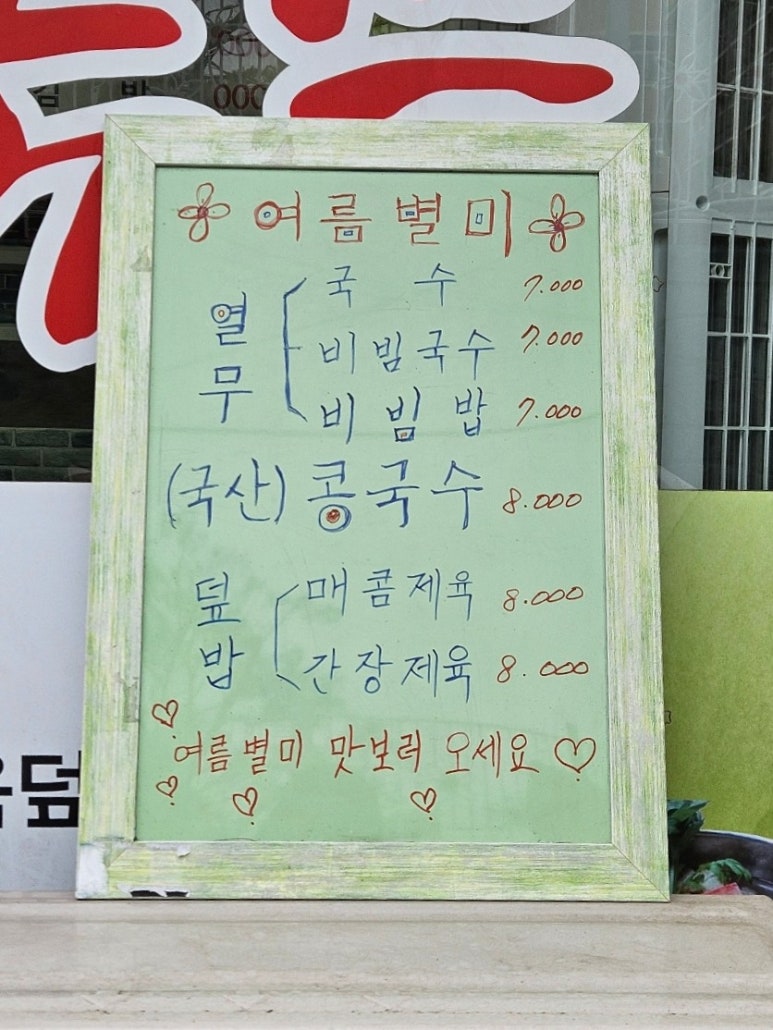 여름별미
열무
국수 7.000
비빔국수 7.000
비빔밥 7.000
(국산) 콩국수 8.000
덮밥
매콤제육 8.000
간장제육 8.000
여름별미 맛보러 오세요
덮